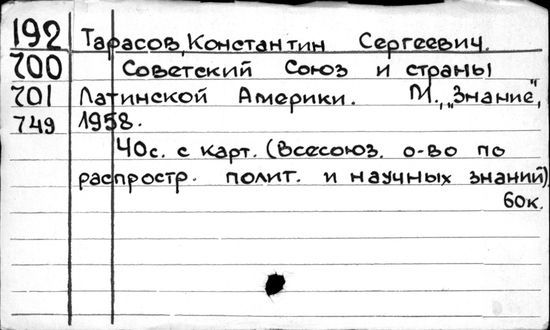 192 Тарасов, Константин Сергеевич.
700 Советский Союз и страны
701 Латинской Америки. М., „Знание",
749 1958.
40с. с карт. (Всесоюз. о-во по
распростр. полит. и научных знаний)
60к.